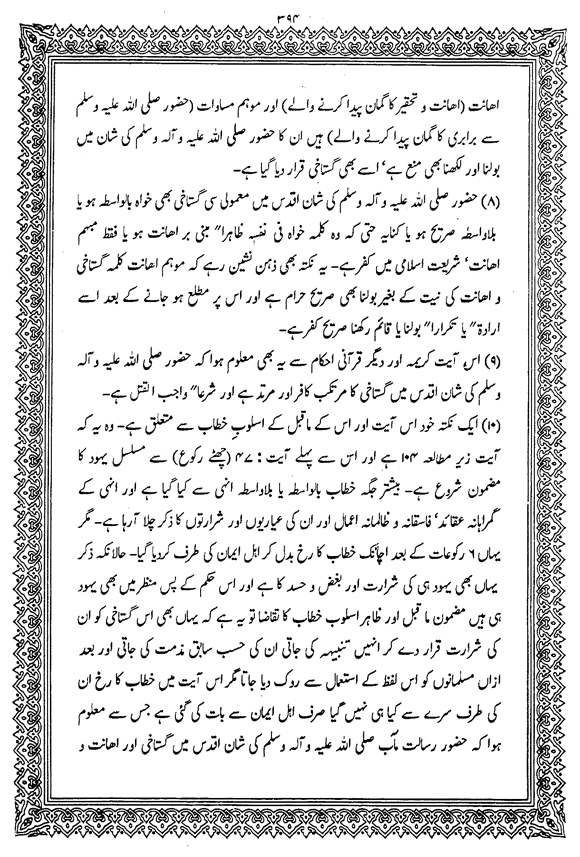 ۳۹۴
اھانت (اھانت و تحقیر کا گمان پیدا کرنے والے) اور موہم مساوات (حضور صلی اللہ علیہ وسلم
سے برابری کا گمان پیدا کرنے والے) ہیں ان کا حضور صلی اللہ علیہ و آلہ وسلم کی شان میں
بولنا اور لکھنا بھی منع ہے' اسے بھی گستاخی قرار دیا گیا ہے۔
(۸) حضور صلی اللہ علیہ و آلہ وسلم کی شان اقدس میں معمولی سی گستاخی بھی خواہ بالواسطہ ہو یا
بلاواسطہ صریح ہو یا کنایہ حتی کہ وہ کلمہ خواہ فی نفسہ ظاہرا" مبنی بر اھانت ہو یا فقط مبہم
اھانت' شریعت اسلامی میں کفر ہے۔ یہ نکتہ بھی ذہن نشین رہے کہ موہم اھانت کلمہ گستاخی
و اھانت کی نیت کے بغیر بولنا بھی صریح حرام ہے اور اس پر مطلع ہو جانے کے بعد اسے
ارادۃ" یا تکرارا" بولنا یا قائم رکھنا صریح کفر ہے۔
(۹) اس آیت کریمہ اور دیگر قرآنی احکام سے یہ بھی معلوم ہوا کہ حضور صلی اللہ علیہ و آلہ
وسلم کی شان اقدس میں گستاخی کا مرتکب کافر اور مرتد ہے اور شرعا" واجب القتل ہے۔
(۱۰) ایک نکتہ خود اس آیت اور اس کے ماقبل کے اسلوب خطاب سے متعلق ہے۔ وہ یہ کہ
آیت زیر مطالعہ ۱۰۴ ہے اور اس سے پہلے آیت : ۴۷ (چھٹے رکوع) سے مسلسل یہود کا
مضمون شروع ہے۔ بیشتر جگہ خطاب بالواسطہ یا بلاواسطہ انہی سے کیا گیا ہے اور انہی کے
گمراہانہ عقائد' فاسقانہ و ظالمانہ اعمال اور ان کی عیاریوں اور شرارتوں کا ذکر چلا آرہا ہے۔ مگر
یہاں ۶ رکوعات کے بعد اچانک خطاب کا رخ بدل کر اہل ایمان کی طرف کردیا گیا۔ حالانکہ ذکر
یہاں بھی یہود ہی کی شرارت اور بغض و حسد کا ہے اور اس حکم کے پس منظر میں بھی یہود
ہی ہیں مضمون ما قبل اور ظاہر اسلوب خطاب کا تقاضا تو یہ ہے کہ یہاں بھی اس گستاخی کو ان
کی شرارت قرار دے کر انہیں تنبیہہ کی جاتی ان کی حسب سابق مذمت کی جاتی اور بعد
ازاں مسلمانوں کو اس لفظ کے استعمال سے روک دیا جاتا مگر اس آیت میں خطاب کا رخ ان
کی طرف سرے سے کیا ہی نہیں گیا صرف اہل ایمان سے بات کی گئی ہے جس سے معلوم
ہوا کہ حضور رسالت مآب صلی اللہ علیہ و آلہ وسلم کی شان اقدس میں گستاخی اور اھانت و